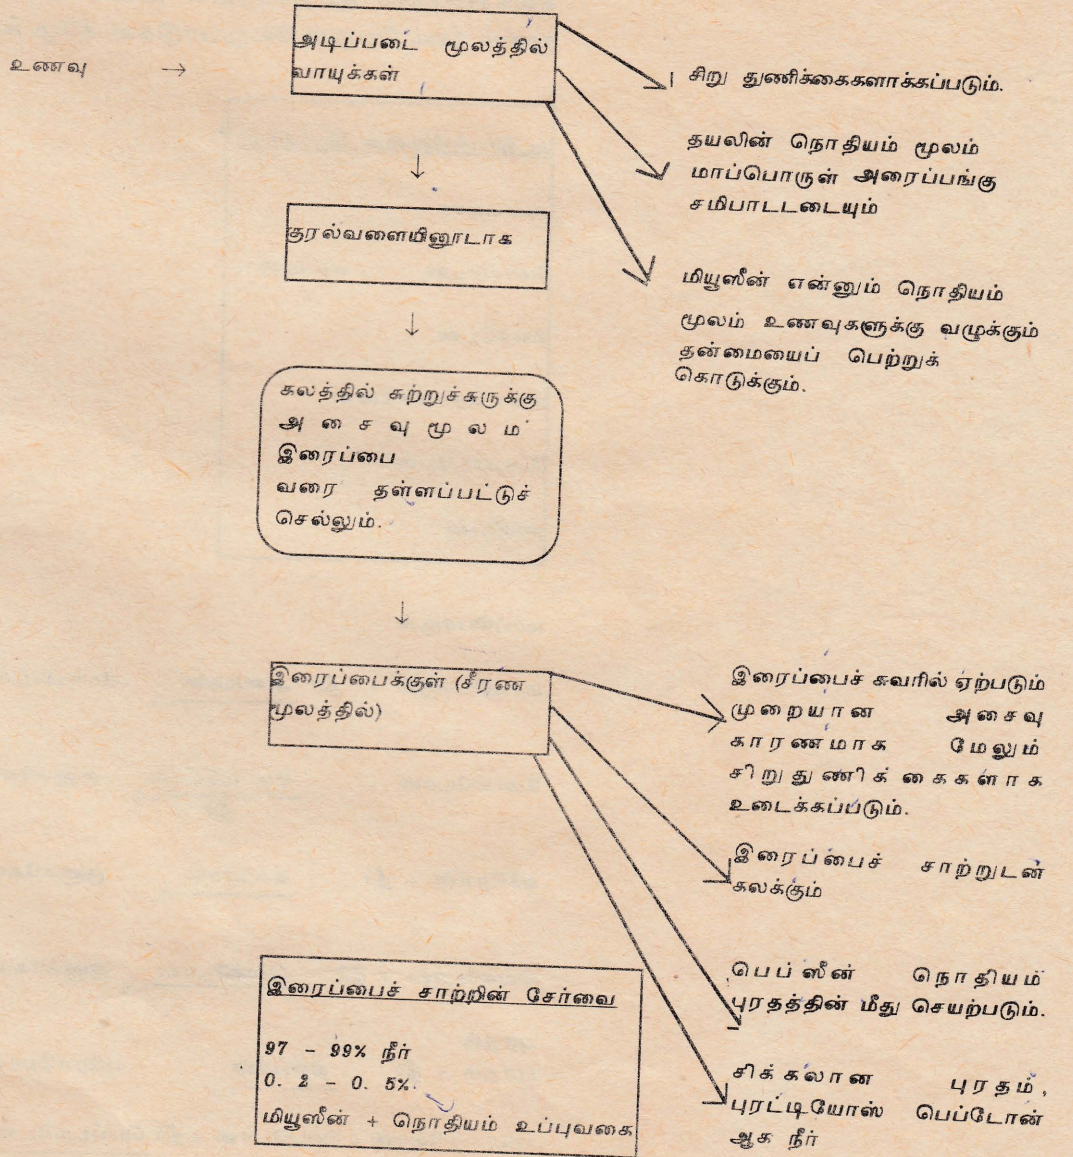 உணவு →
அடிப்படை மூலத்தில்
வாயுக்கள்
சிறு துணிக்கைகளாக்கப்படும்.
தயலின் நொதியம் மூலம்
மாப்பொருள் அரைப்பங்கு
சமிபாடடடையும்
மியூஸீன் என்னும் நொதியம்
மூலம் உணவுகளுக்கு வழுக்கும்
தன்மையைப் பெற்றுக்
கொடுக்கும்.
↓
குரல்வளையினூடாக
↓
கலத்தில் சுற்றுச்சுருக்கு
அசைவுமூலம்
இரைப்பை
வரை தள்ளப்பட்டுச்
செல்லும்.
↓
இரைப்பைக்குள் (சீரண
மூலத்தில்)
இரைப்பைச் சுவரில் ஏற்படும்
முறையான அசைவு
காரணமாக மேலும்
சிறுதுணிக்கைகளாக
உடைக்கப்படும்.
இரைப்பைச் சாற்றுடன்
கலக்கும்
பெப்ஸீன் நொதியம்
புரதத்தின் மீது செயற்படும்.
சிக்கலான புரதம்,
புரட்டியோஸ் பெப்டோன்
ஆக நீர்
இரைப்பைச் சாற்றின் சேர்வை
97 - 99% நீர்
0. 2 - 0. 5%
மியூஸீன் + நொதியம் உப்புவகை